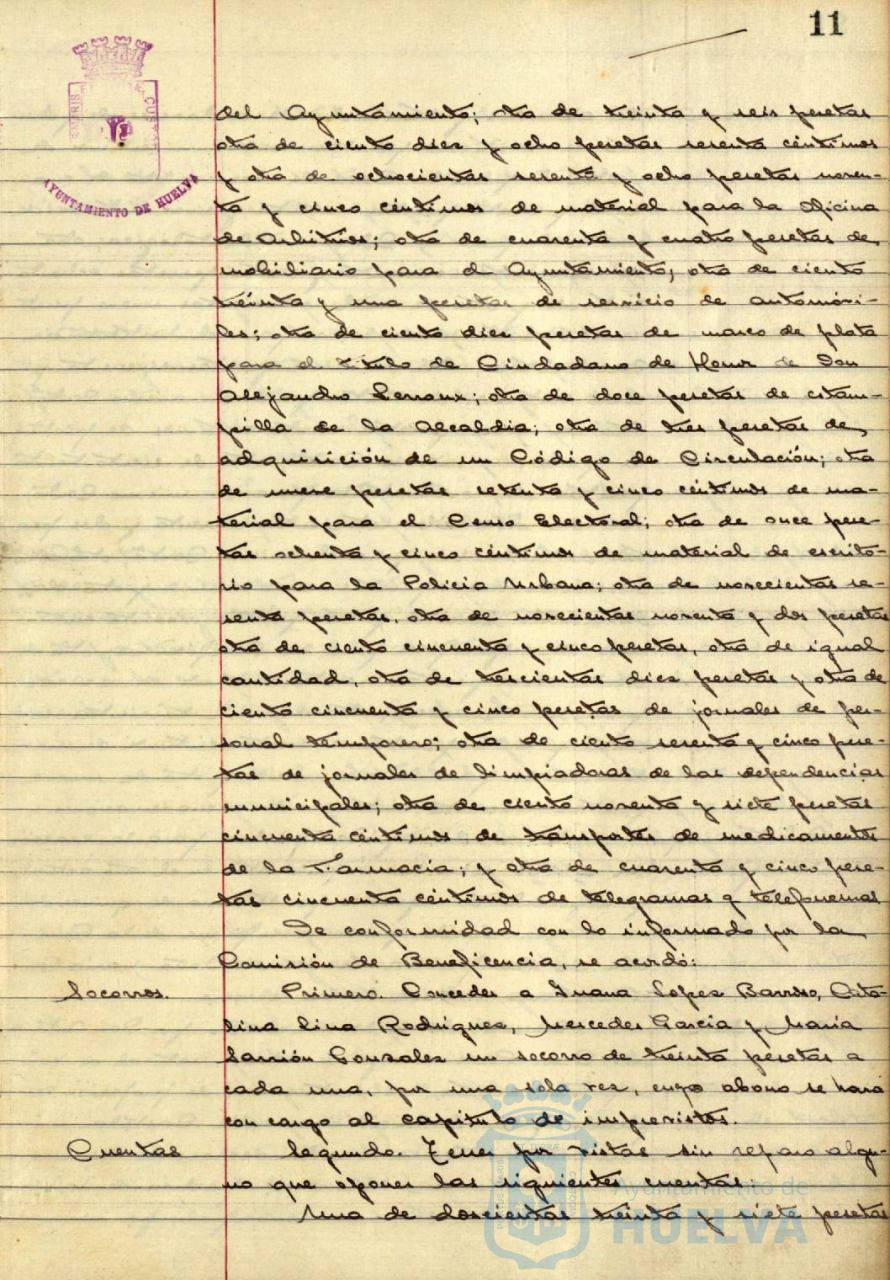 11
AYUNTAMIENTO DE HUELVA
del Ayuntamiento; otra de treinta y seis pesetas
otra de ciento diez y ocho pesetas sesenta céntimos
y otra de ochocientas sesenta y ocho pesetas noven-
ta y cinco céntimos de material para la Oficina
de Arbitrios; otra de cuarenta y cuatro pesetas de
mobiliario para el Ayuntamiento; otra de ciento
treinta y una pesetas de servicio de automóvi-
les; otra de ciento diez pesetas de marco de plata
para el título de Ciudadano de Honor de Don
Alejandro Lerroux; otra de doce pesetas de estam-
pilla de la Alcaldia; otra de tres pesetas de
adquisición de un Código de Circulación; otra
de nueve pesetas setenta y cinco céntimos de ma-
terial para el Censo Electoral; otra de once pese-
tas ochenta y cinco céntimos de material de escrito-
rio para la Policia Urbana; otra de novecientas se-
senta pesetas, otra de novecientas noventa y dos pesetas
otra de ciento cincuenta y cinco pesetas, otra de igual
cantidad, otra de trescientas diez pesetas y otra de
ciento cincuenta y cinco pesetas de jornales de per-
sonal temporero; otra de ciento sesenta y cinco pese-
tas de jornales de limpiadoras de las dependencias
municipales; otra de ciento noventa y siete pesetas
cincuenta céntimos de transportes de medicamentos
de la Farmacia; y otra de cuarenta y cinco pese-
tas cincuenta céntimos de telegramas y telefonemas
De conformidad con lo informado por la
Comisión de Beneficencia, se acordó:
Socorros.
Primero. Conceder a Juana Lopez Barroso,
Lina Rodriguez, Mercedes Garcia y Maria
Sarrión Gonzalez un socorro de treinta pesetas a
cada una, por una sola vez, cuyo abono se hará
con cargo al capítulo de imprevistos.
Cuentas
Segundo. Tener por vistas sin reparo algu-
no que oponer las siguientes cuentas
Una de doscientas treinta y siete pesetas
Ayuntamiento de
HUELVA